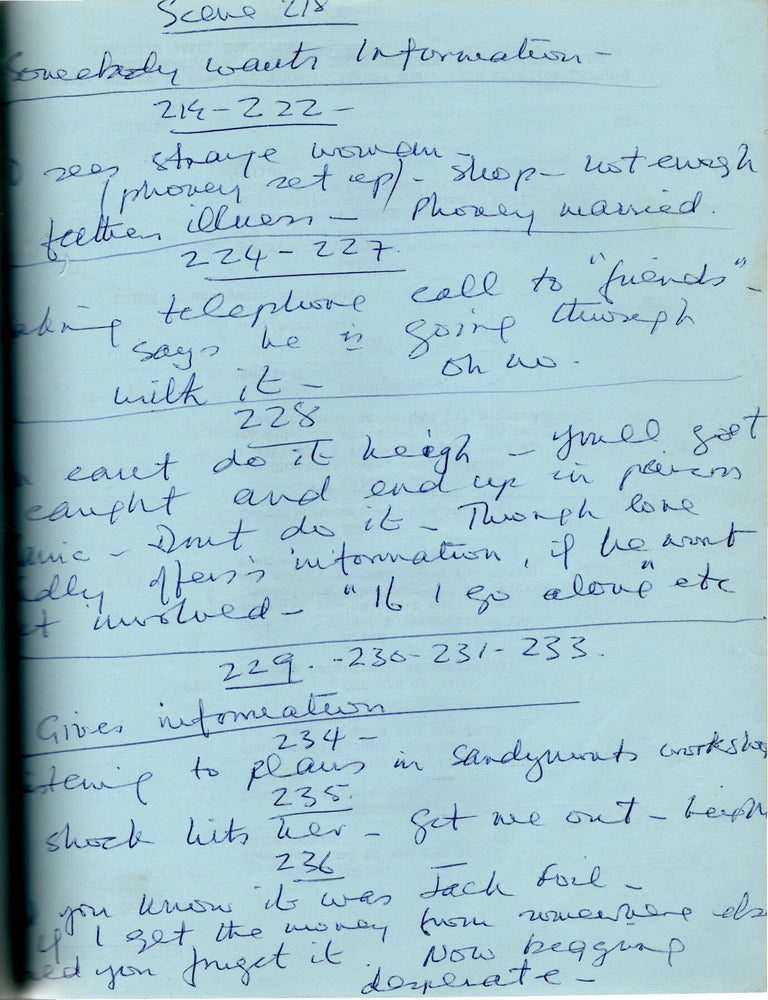 Scene 218
Somebody wants Information -
219 - 222 -
sees strange woman -
(phoney set up) - shop - not enough
fathers illness - Phoney married.
224 - 227.
telephone call to "friends" -
says he is going through
with it - oh no.
228
cant do it heigh - you'll get
caught and end up in prison
- Dont do it - Through love
offers information, if he wont
involved - "If I go alone" etc
229. - 230 - 231 - 233.
Gives information
234 -
to plans in Sandymounts workshop
235.
shock hits her - get me out -
236
you know it was Jack Foil -
If I get the money from somewhere else
you forget it. Now begging
desperate -